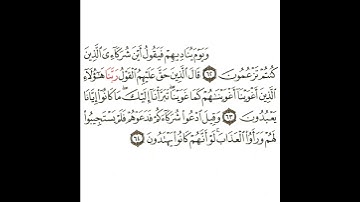 وَيَوْمَ يُنَادِيهِمْ فَيَقُولُ أَيْنَ شُرَكَآءِىَ ٱلَّذِينَ
كُنتُمْ تَزْعُمُونَ ٦٢ قَالَ ٱلَّذِينَ حَقَّ عَلَيْهِمُ ٱلْقَوْلُ رَبَّنَا هَٰٓؤُلَآءِ
ٱلَّذِينَ أَغْوَيْنَآ أَغْوَيْنَٰهُمْ كَمَا غَوَيْنَا ۖ تَبَرَّأْنَآ إِلَيْكَ ۖ مَا كَانُوٓا۟ إِيَّانَا
يَعْبُدُونَ ٦٣ وَقِيلَ ٱدْعُوا۟ شُرَكَآءَكُمْ فَدَعَوْهُمْ فَلَمْ يَسْتَجِيبُوا۟
لَهُمْ وَرَأَوُا۟ ٱلْعَذَابَ ۚ لَوْ أَنَّهُمْ كَانُوا۟ يَهْتَدُونَ ٦٤